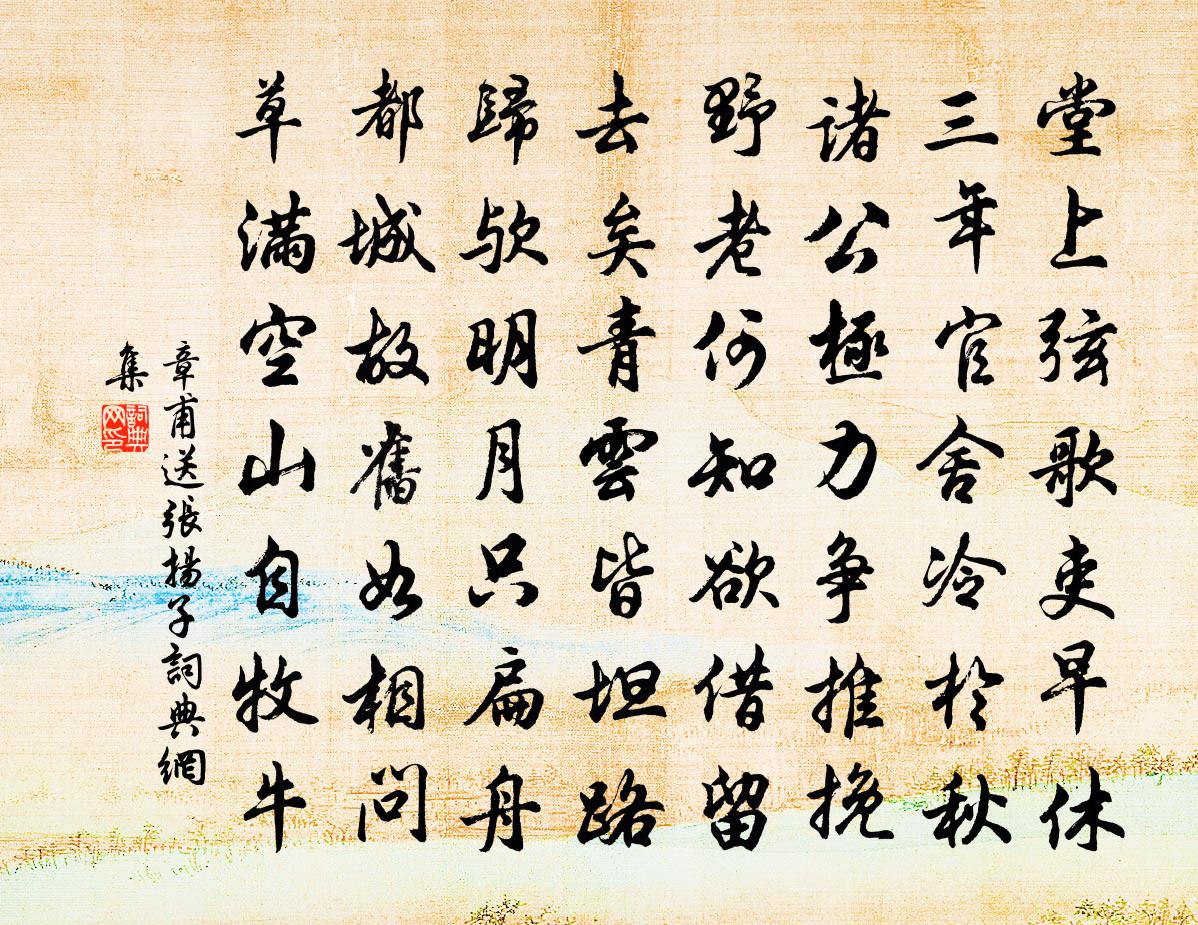 堂上弦歌吏早休
三年官舍冷於秋
诸公極力争推挽
野老何知欲借留
去矣青雲皆坦路
歸欤明月只扁舟
都城故舊如相問
草满空山自牧牛
章甫送張揚子詞典網
集
詞典
网印